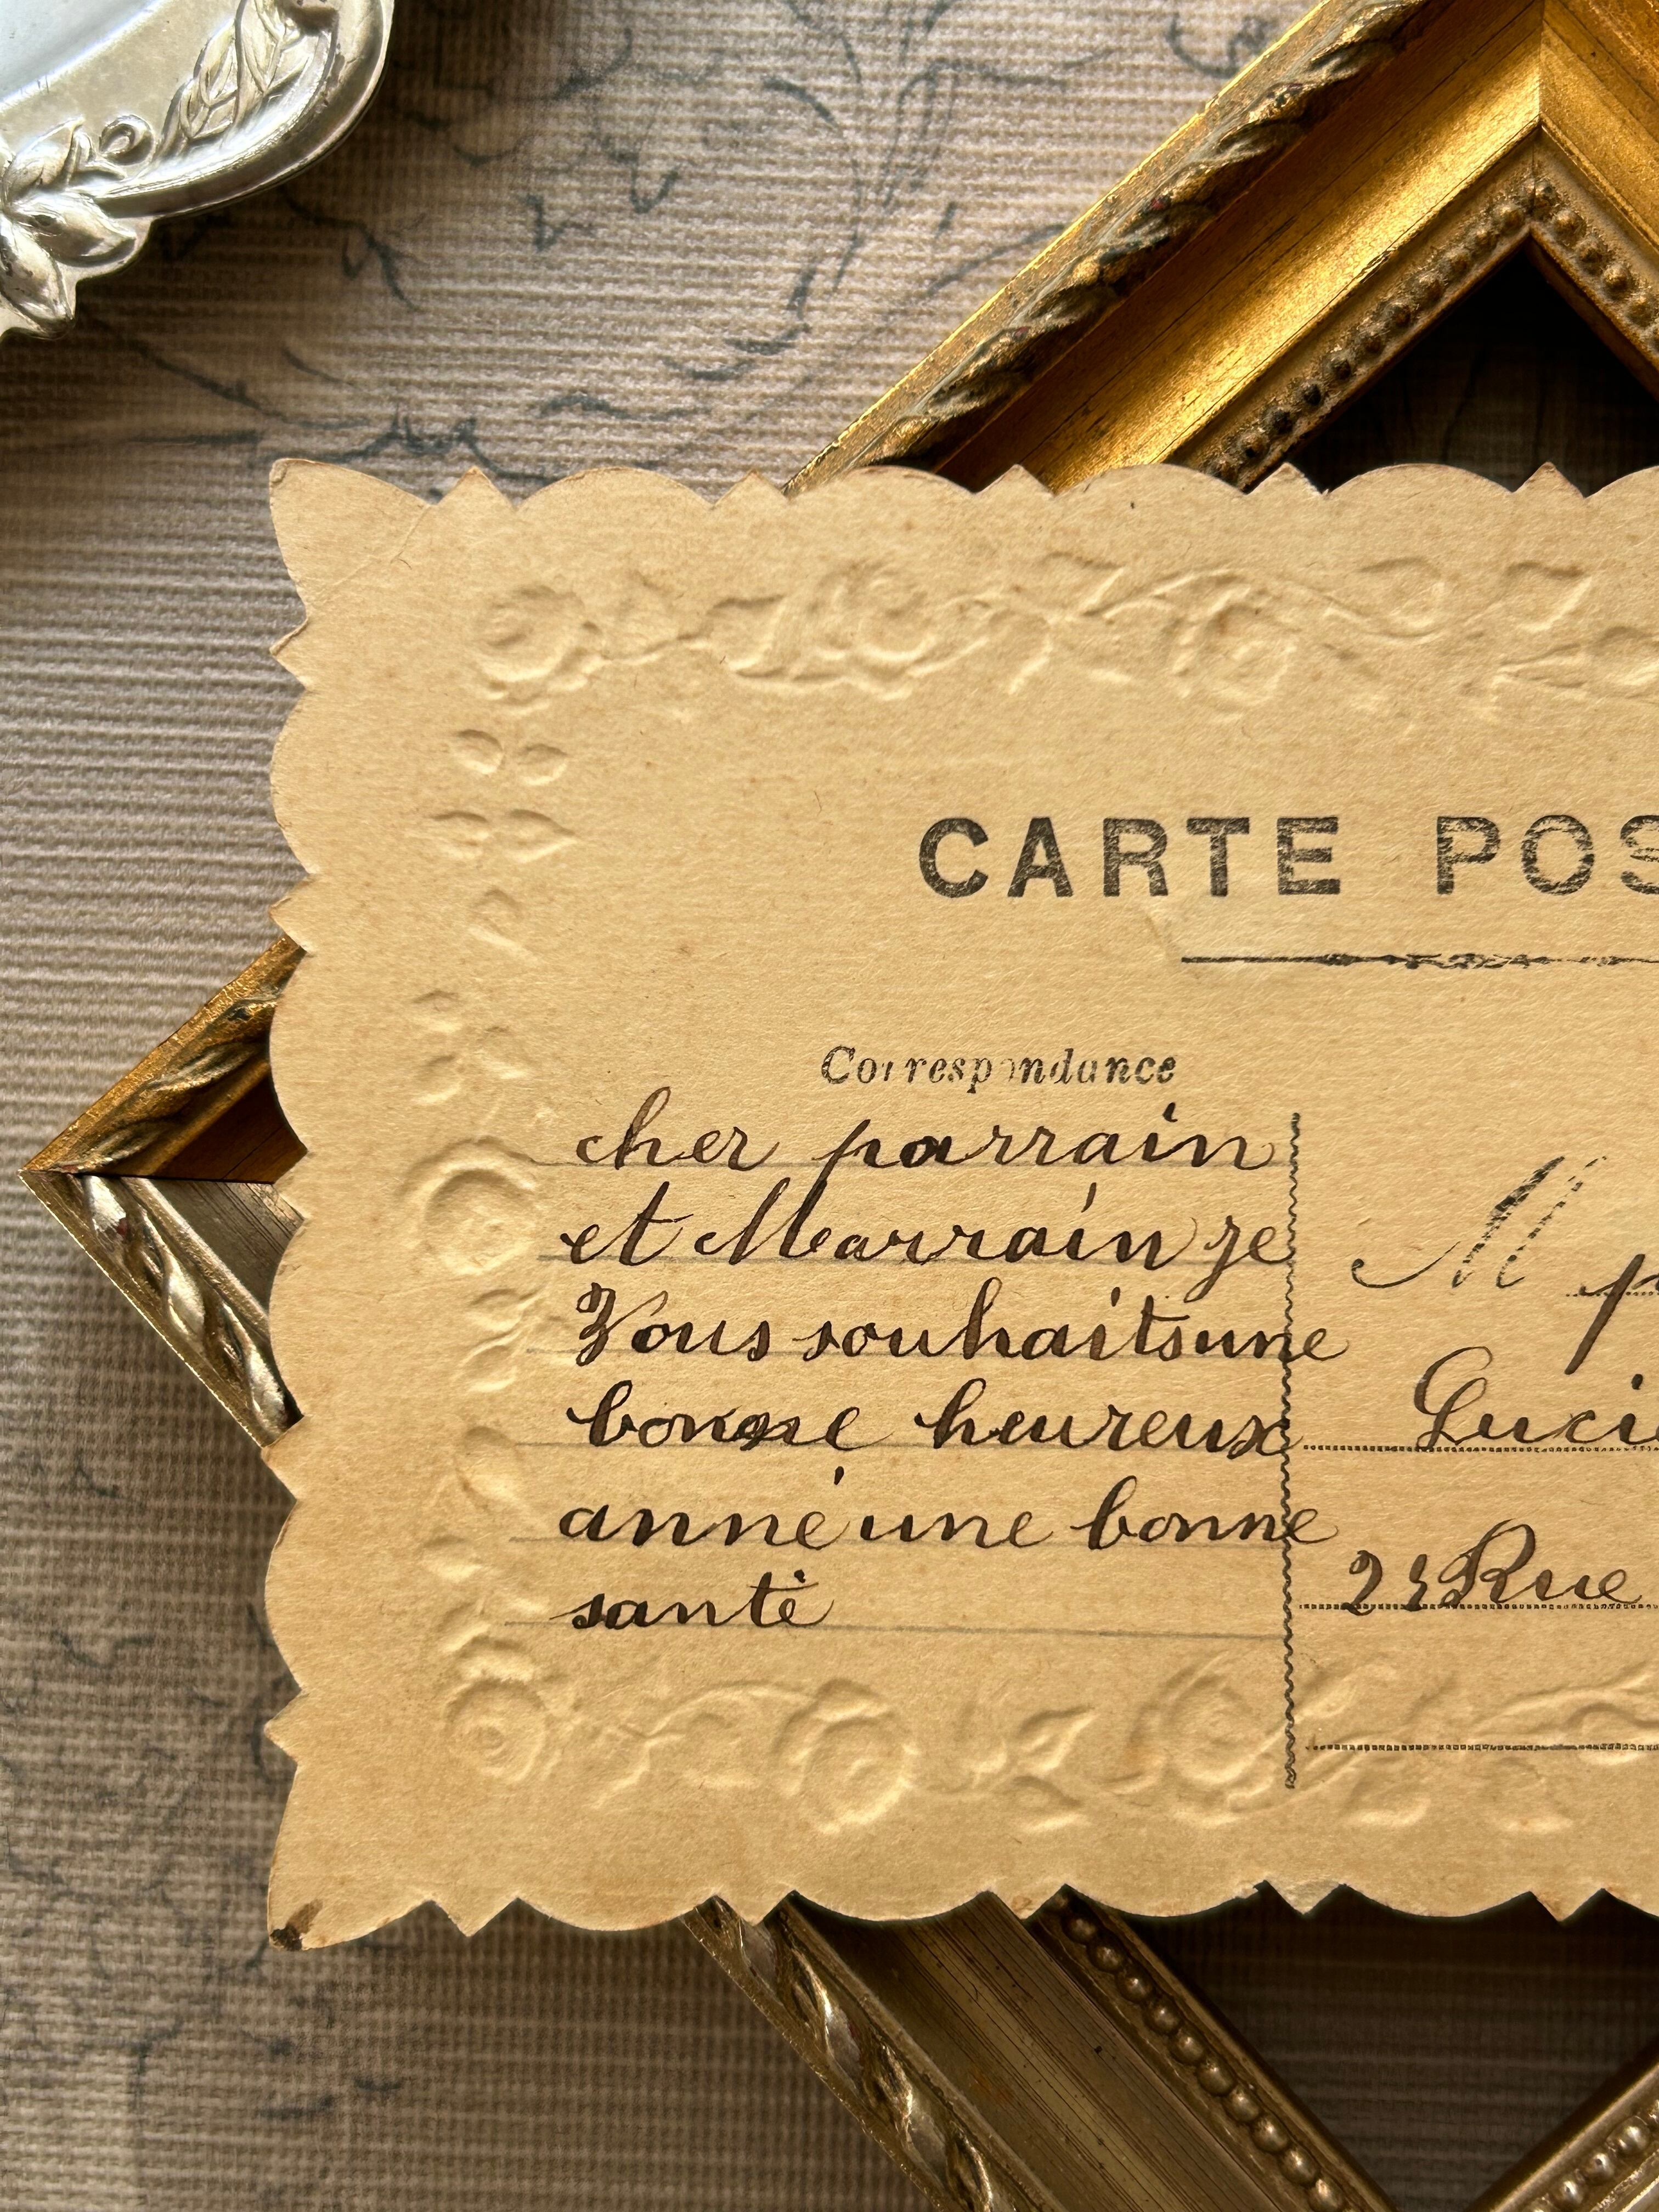 CARTE POS
Correspondance
cher parrain
et Marrain je
Vous souhaitsune
bonne heureux
anné une bonne
santé
M p
Lucie
21 Rue